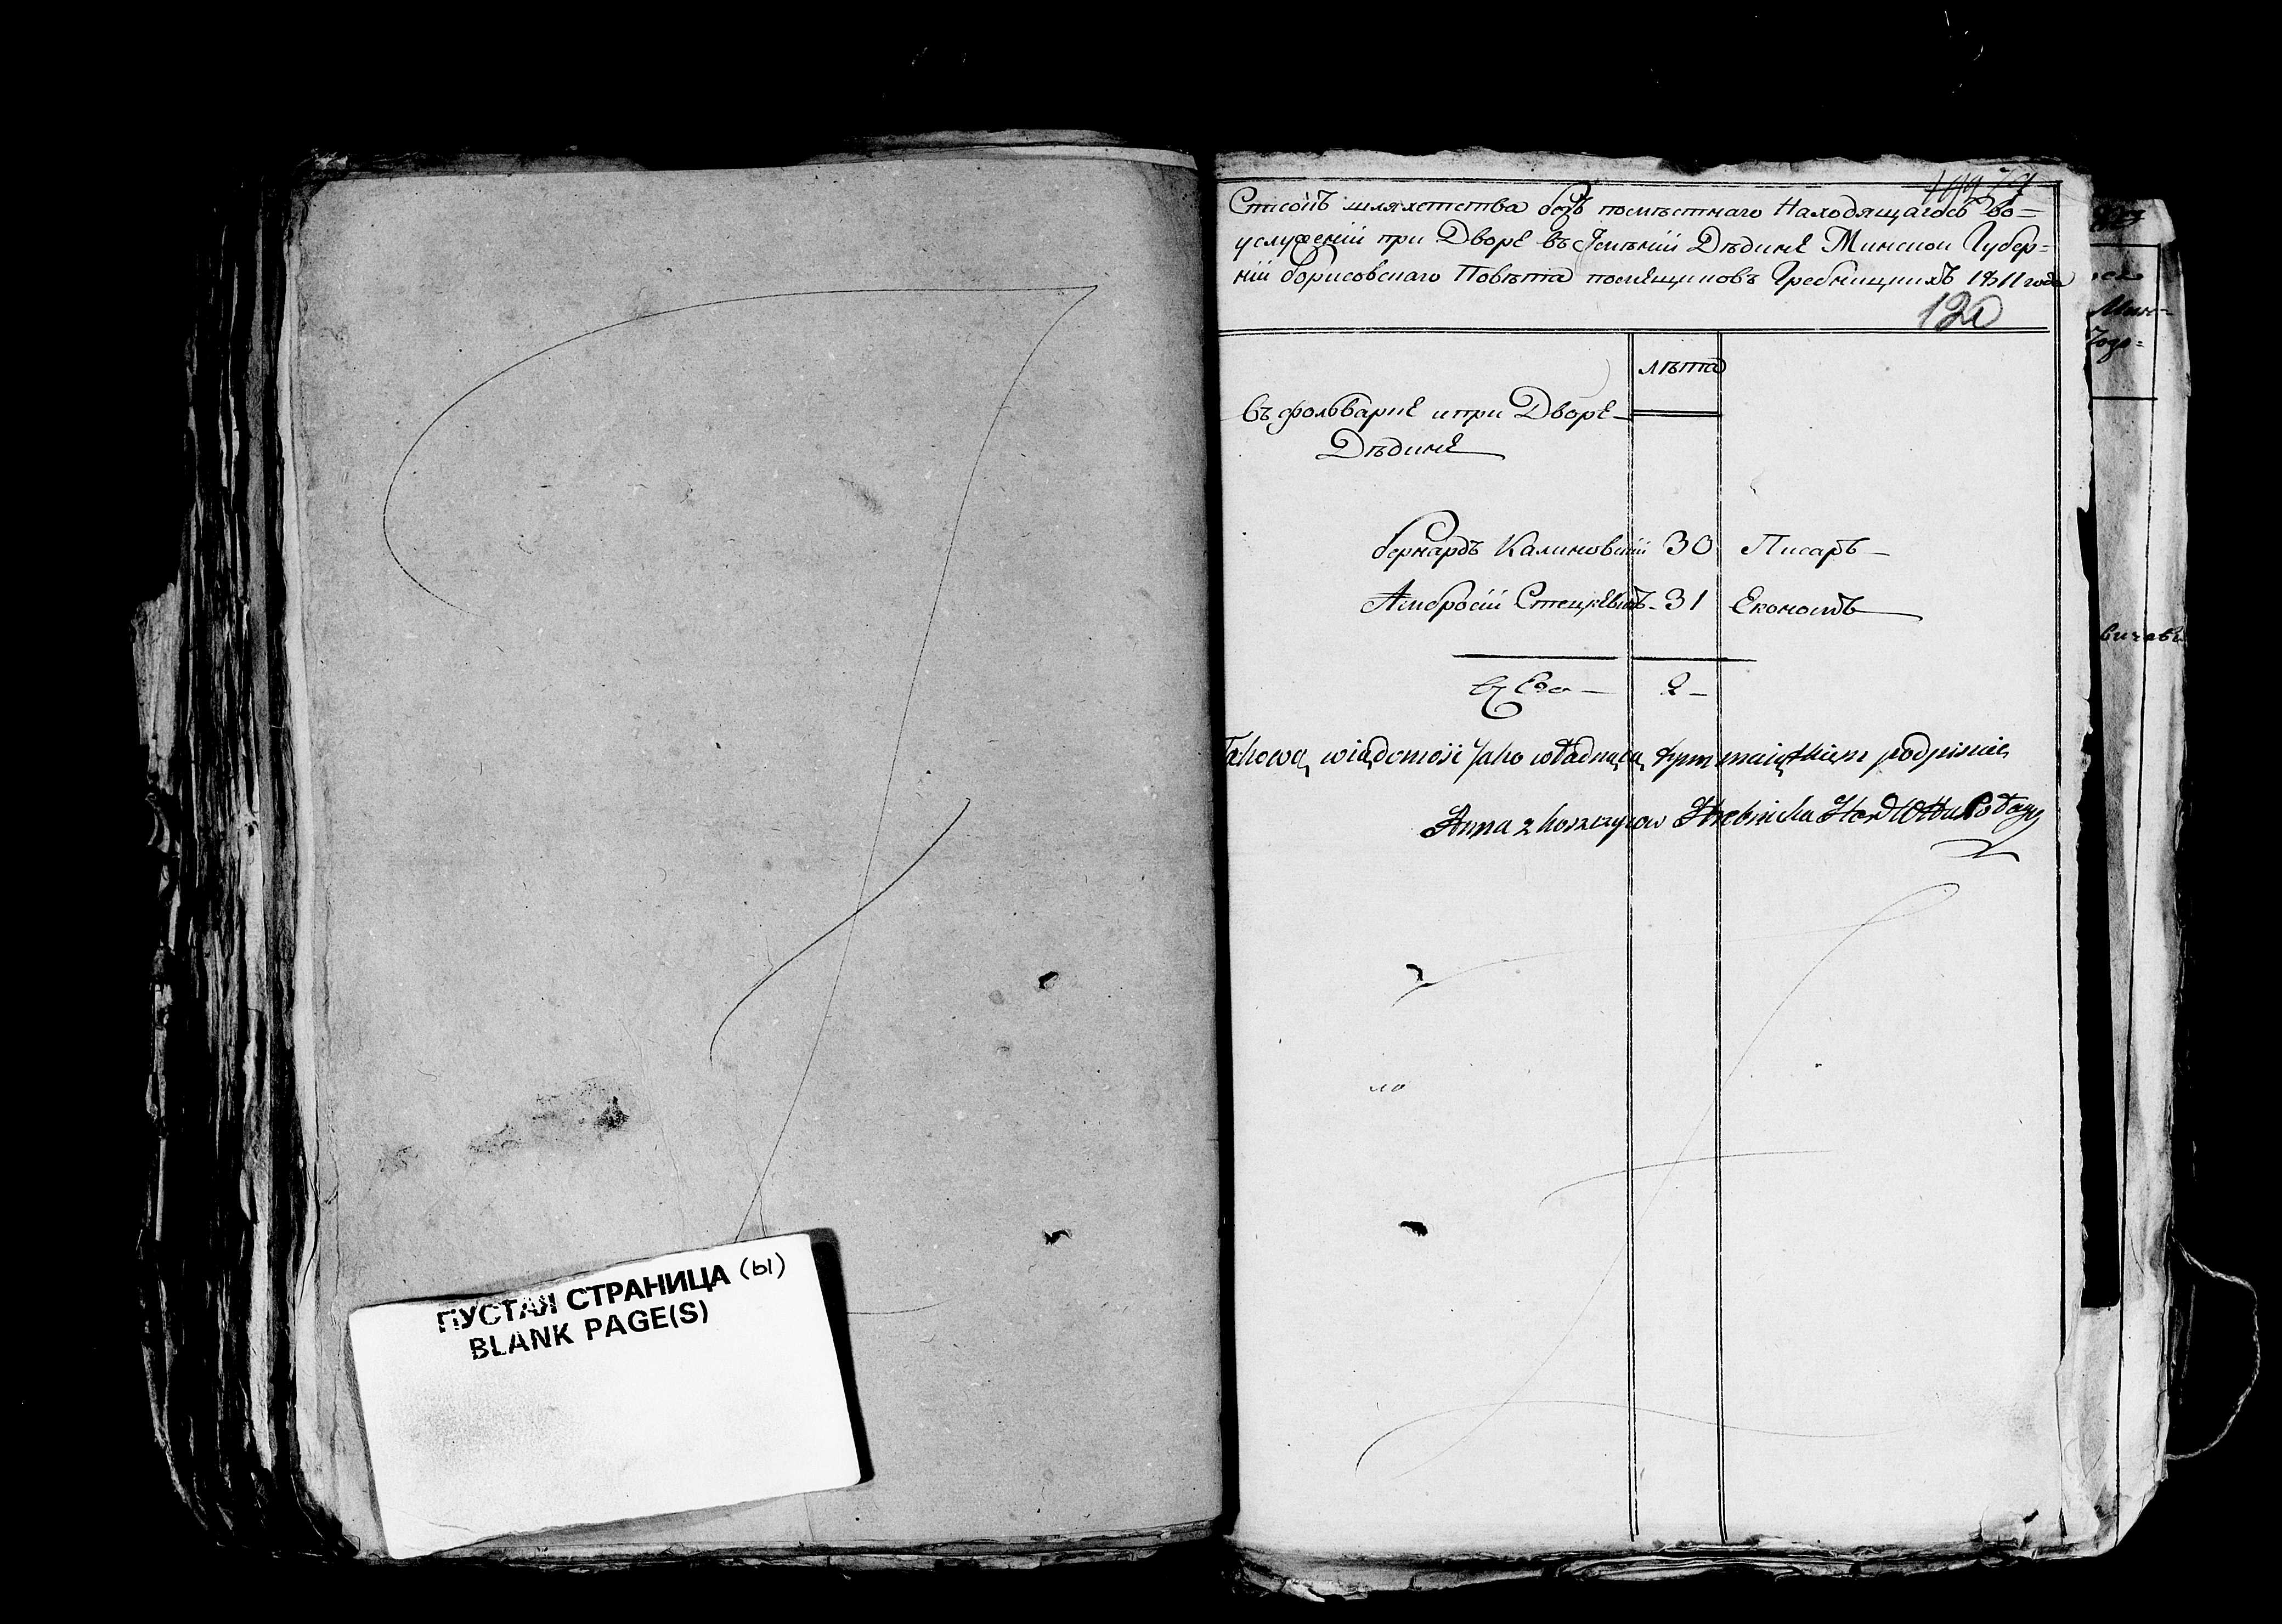 ПУСТАЯ СТРАНИЦА (Ы)
BLANK PAGE(S)
Списокъ шляхетства безъ помѣстнаго Находящагось во=
услуженіи при Дворѣ въ Имѣніи Дѣдинѣ Минской Губер=
ніи Борисовскаго Повѣта помѣщиковъ Гребницкихъ 1811 года
120
лѣта
въ фольваркѣ и при Дворѣ
Дѣдинѣ
Бернардъ Калиновскій 30 Писарь
Амбросій Стецкевичъ 31 Економъ
2
Takową wiadomość Jako władnąca tym maiątkiem podpisuię
Anna z Hrebnicka
Мин=
вичевъ